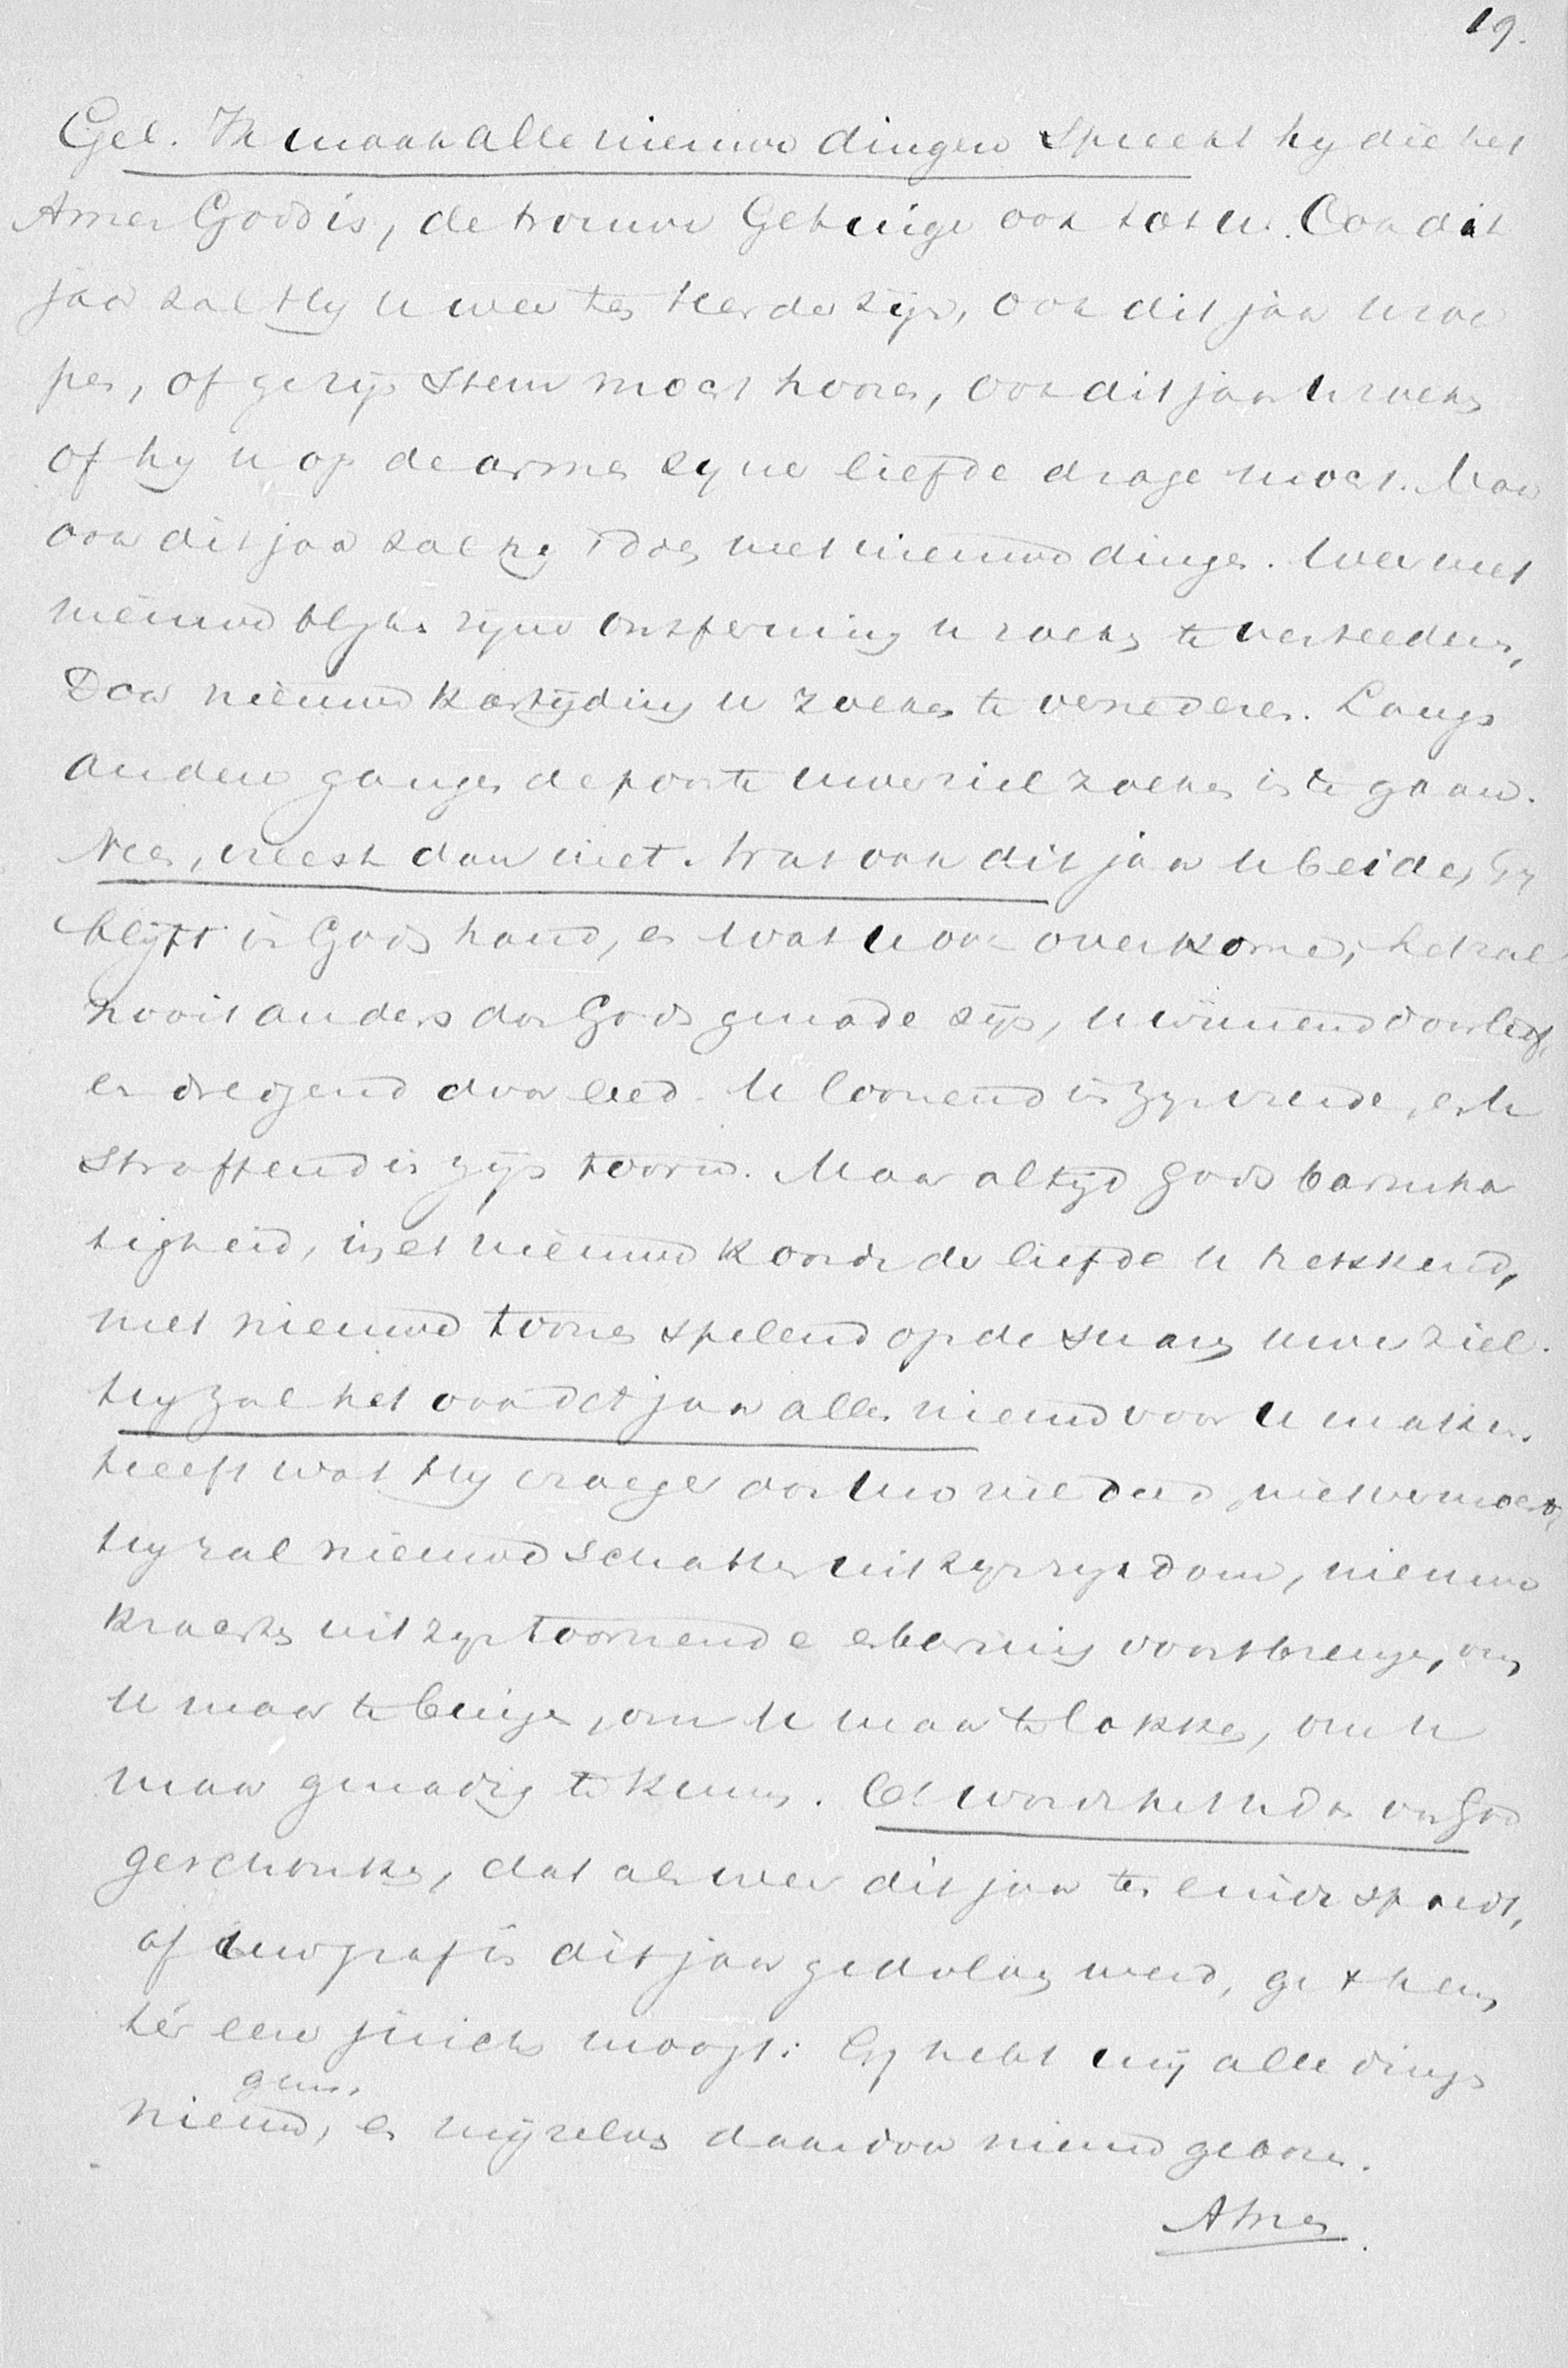 19.
Gel. Ik maak alle nieuwe dingen spreekt hy die het
Amen Gods is, de trouwe Getuige ook tot u. Ook dit
jaar zal Hy u weer ten Herder zijn, ook dit jaar u roe
pen, of ge zijn stem mocht hooren, ook dit jaar u zoeken
of hy u op de armen zyner liefde drage mocht. Maar
ook dit jaar zal hy 't doen met nieuwe dingen. Weer met
nieuwe blyken zijner ontferming u zoeken te verteederen,
Door nieuwe kastijding u zoeken te vernederen. Langs
andere gangen de poorte uwer ziel zoeken in te gaan.
Neen, vreest dan niet. Wat ook dit jaar u beide, Gy
blijft in Gods hand, en wat u ook overkome, het zal
nooit anders dan Gods genade zijn, u winnend door lief,
en dreigend door leed. U loonend in zyn vreude, en u
straffend in zijn toorn. Maar altijd Gods barmhar
tigheid, met nieuwe koorde der liefde u trekkend,
met nieuwe toonen spelend op de snaren uwer ziel.
Hy zal het ook dit jaar alles nieuw voor u maken.
Heeft wat Hy vroeger aan uw ziel deed, niet vermocht,
Hy zal nieuwe schatten uit zyn rykdom, nieuwe
krachten uit zyn toornende erbarming voortbrengen, om
u maar te buigen, om u maar te lokken, om u
maar genadig te kunnen. Och wordt het u dan van God
geschonken, dat als weer dit jaar ten einde spoedt,
of uw graf in dit jaar gedolven werd, ge t hem
ter eere juichen moogt: Gy hebt mij alle dingen
gem.
nieuw, en mijzelven daardoor nieuw geboren.
Amen